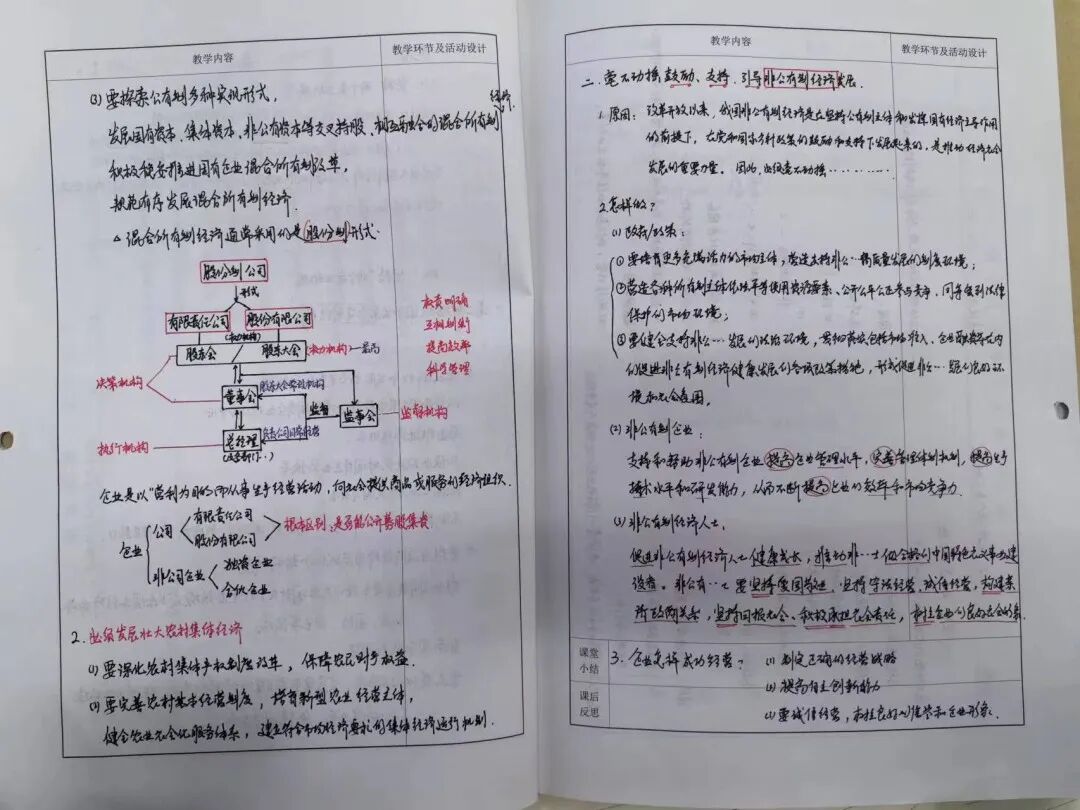 教学内容 教学环节及活动设计
(3) 要探索公有制多种实现形式,
经济.
发展国有资本、集体资本、非公有资本等交叉持股、相互融合的混合所有制
积极稳妥推进国有企业混合所有制改革,
规范有序发展混合所有制经济.
△ 混合所有制经济通常采用的是股份制形式.
股份制公司
形式
有限责任公司 股份有限公司
(权力机构)
股东会 股东大会 权力机构—最高
决策机构
董事会 股东大会常设机构
监督 监事会 监督机构
执行机构
总经理 负责公司日常经营
权责明确
互相制衡
提高效率
科学管理
企业是以"营利为目的"而从事生产经营活动, 向社会提供商品或服务的经济组织.
企业
公司
有限责任公司
股份有限公司
根本区别:是否能公开募股集资
非公司企业
独资企业
合伙企业
2. 必须发展壮大农村集体经济
(1) 要深化农村集体产权制度改革, 保障农民财产权益.
(2) 要完善农村基本经营制度, 培育新型农业经营主体,
健全农业社会化服务体系, 建立符合市场经济要求的集体经济运行机制.
教学内容 教学环节及活动设计
二. 毫不动摇鼓励、支持、引导非公有制经济发展.
1. 原因: 改革开放以来, 我国非公有制经济是在坚持公有制主体和发挥国有经济主导作用
的前提下, 在党和国家方针政策的鼓励和支持下发展起来的, 是推动经济社会
发展的重要力量. 因此, 必须毫不动摇…………
2. 怎样做?
(1) 政府/政策:
① 要培育更多充满活力的市场主体, 营造支持非公…高质量发展的制度环境;
② 营造各种所有制主体依法平等使用资源要素、公开公平公正参与竞争、同等受到法律
保护的市场环境;
③ 要健全支持非公…发展的法治环境, 贯彻落实放宽市场准入、
的促进非公有制经济健康发展的各项政策措施, 形成促进非公…发展的良好环
境和社会氛围.
(2) 非公有制企业:
支持和帮助非公有制企业提高企业管理水平, 完善管理体制机制, 提高生产
技术水平和研发能力, 从而不断提高企业的效率和市场竞争力.
(3) 非公有制经济人士.
促进非公有制经济人士健康成长, 推动非…士做合格的中国特色社会主义事业建
设者. 非公有…士要坚持爱国敬业、坚持守法经营、诚信经营, 构建亲
清政商关系, 坚持回报社会、积极承担社会责任, 树立企业的良好社会形象.
课堂小结
3. 企业怎样成功经营? (1) 制定正确的经营战略
课后反思
(2) 提高自主创新能力
(3) 要诚信经营, 树立良好的信誉和企业形象.